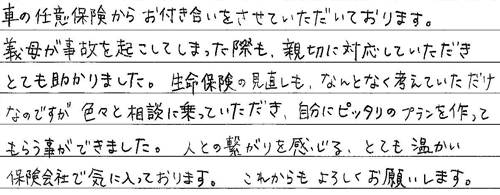 車の任意保険からお付き合いをさせていただいております。
義母が事故を起こしてしまった際も、親切に対応していただき
とても助かりました。生命保険の見直しも、なんとなく考えていただけ
なのですが色々と相談に乗っていただき、自分にピッタリのプランを作って
もらう事ができました。人との繋がりを感じる、とても温かい
保険会社で気に入っております。これからもよろしくお願いします。